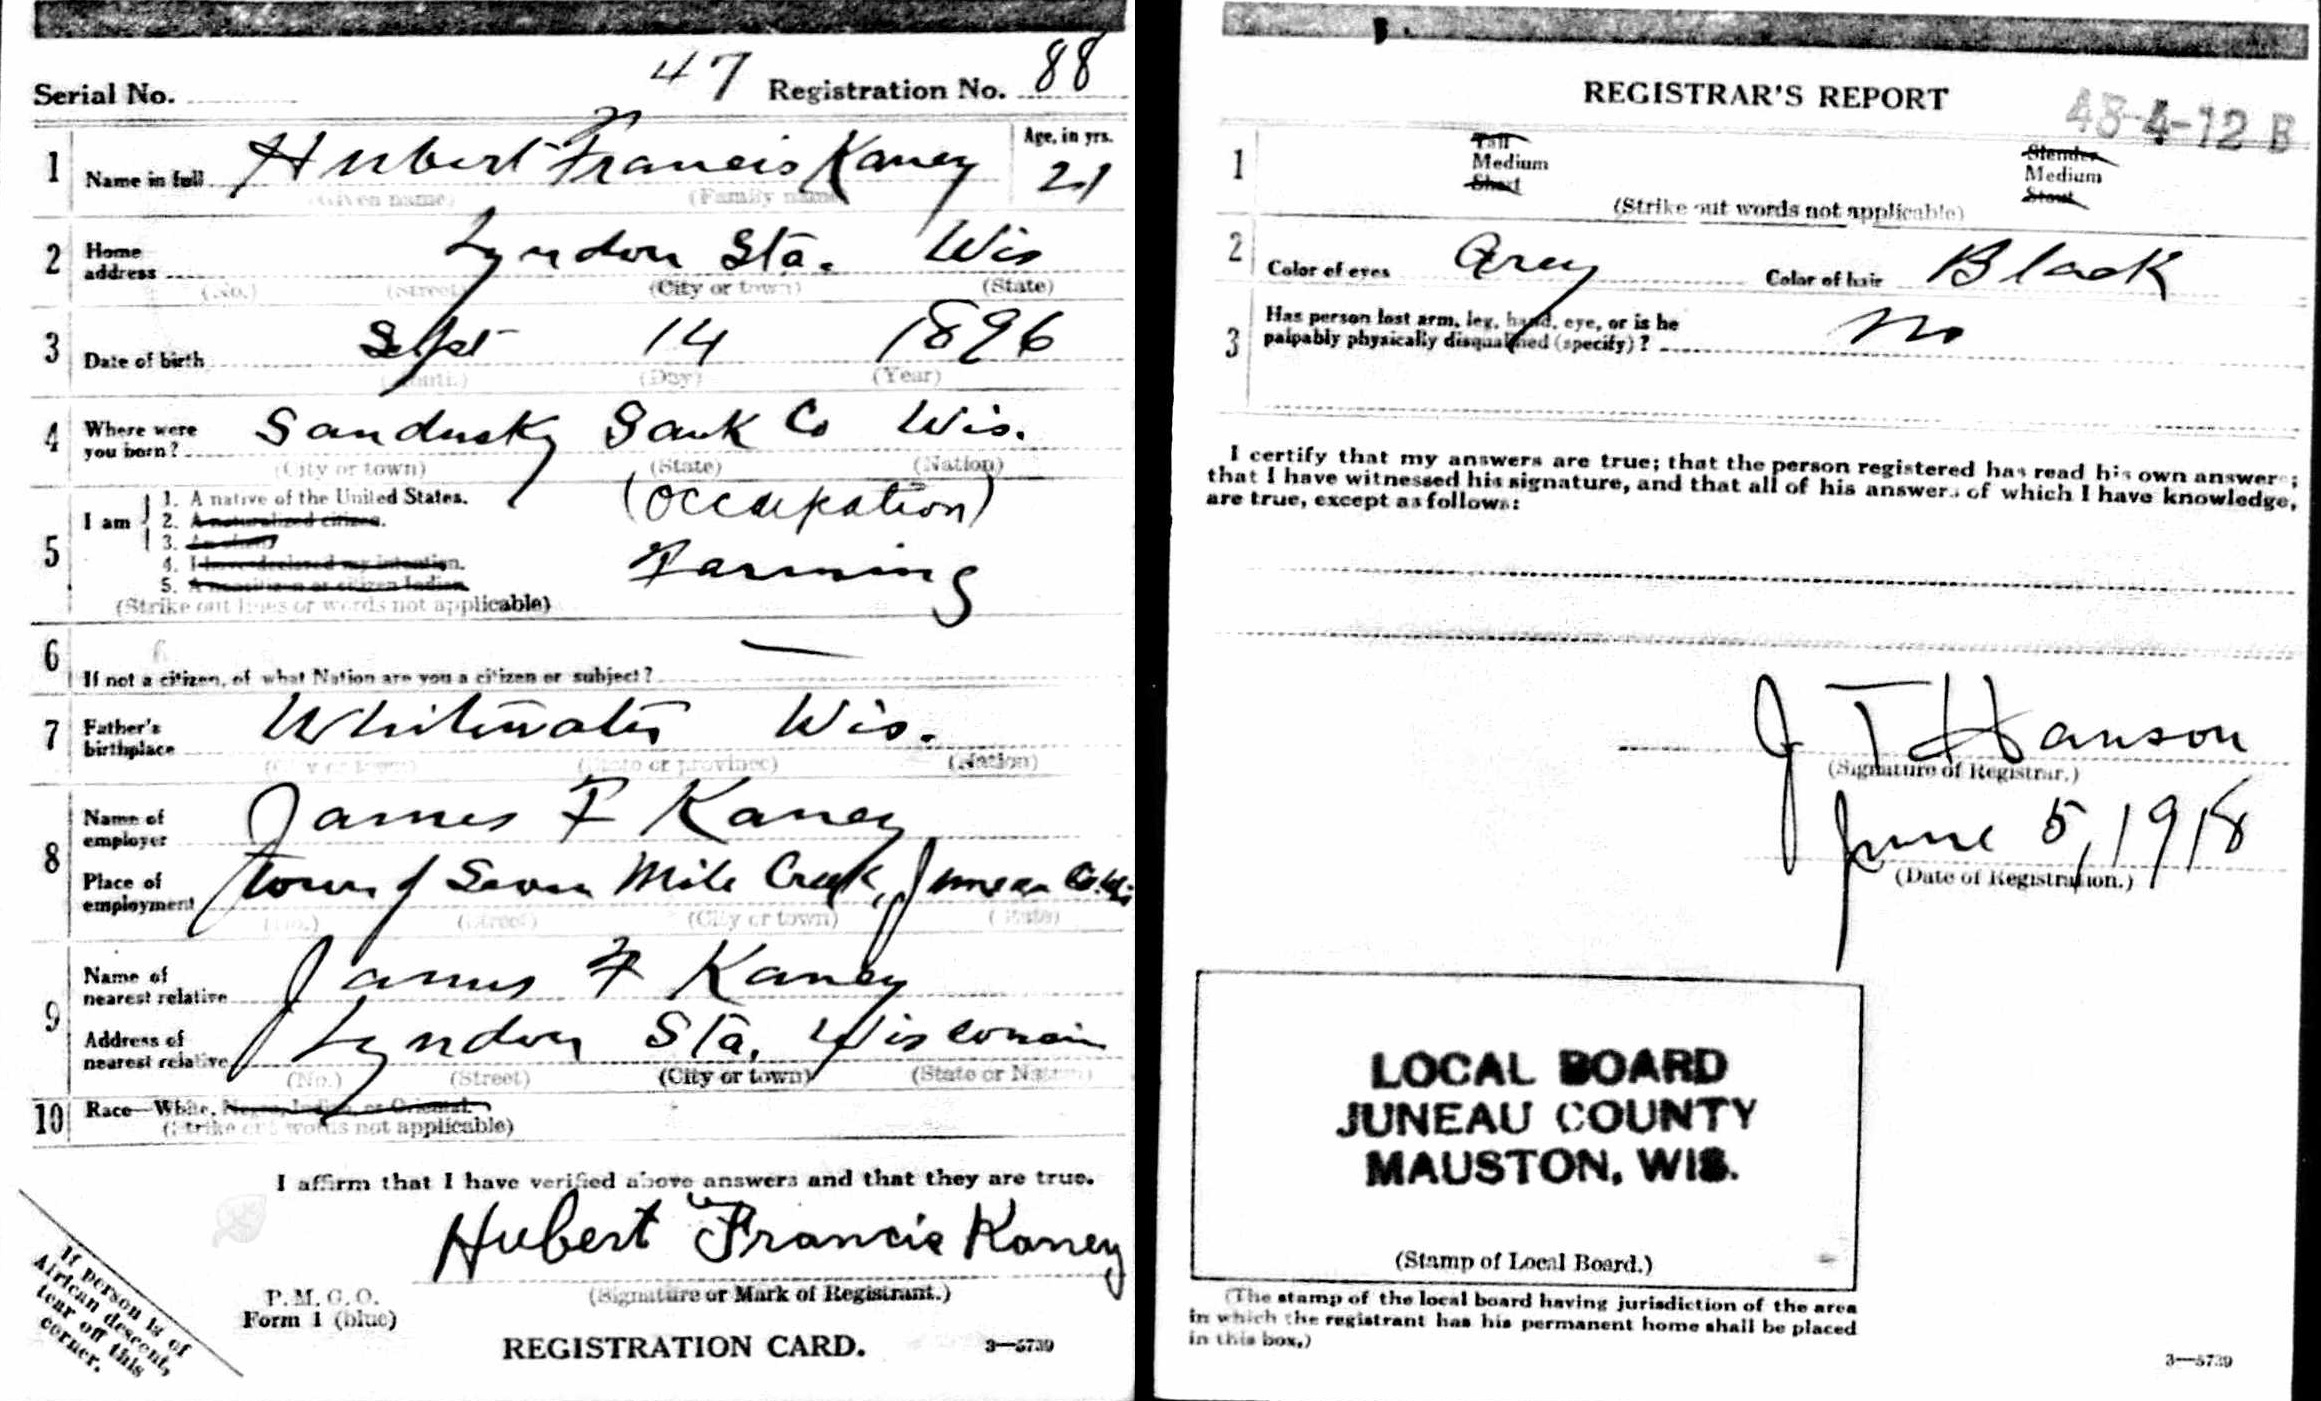 Serial No. 47 Registration No. 88
1 Name in full Hubert Francis Kaney Age, in yrs. 21
(Given name) (Family name)
2 Home address Lyndon Sta. Wis
(No.) (Street) (City or town) (State)
3 Date of birth Sept 14 1896
(Month.) (Day) (Year)
4 Where were you born? Sandusky Sauk Co Wis.
(City or town) (State) (Nation)
5 I am
1. A native of the United States.
2. A naturalized citizen.
3. An alien
4. I have declared my intention.
5. A noncitizen or citizen Indian.
(Strike out lines or words not applicable)
(Occupation)
Farming
6 If not a citizen, of what Nation are you a citizen or subject? —
7 Father's birthplace Whitewater Wis.
(City or town) (State or province) (Nation)
8 Name of employer James F Kaney
Place of employment town of Seven Mile Creek, Juneau Co. Wis
(No.) (Street) (City or town) (State)
9 Name of nearest relative James F Kaney
Address of nearest relative Lyndon Sta. Wisconsin
(No.) (Street) (City or town) (State or Nation)
10 Race—White, Negro, Indian, or Oriental.
(Strike out words not applicable)
I affirm that I have verified above answers and that they are true.
Hubert Francis Kaney
(Signature or Mark of Registrant.)
P. M. G. O.
Form 1 (blue)
REGISTRATION CARD.
3—5739
If person is of
African descent,
tear off this
corner.
REGISTRAR'S REPORT
48-4-12 B
1 Tall Slender
Medium Medium
Short Stout
(Strike out words not applicable)
2 Color of eyes Grey Color of hair Black
3 Has person lost arm, leg, hand, eye, or is he
palpably physically disqualified (specify)? No
I certify that my answers are true; that the person registered has read his own answers;
that I have witnessed his signature, and that all of his answers of which I have knowledge,
are true, except as follows:
J T Hanson
(Signature of Registrar.)
June 5, 1918
(Date of Registration.)
LOCAL BOARD
JUNEAU COUNTY
MAUSTON, WIS.
(Stamp of Local Board.)
(The stamp of the local board having jurisdiction of the area
in which the registrant has his permanent home shall be placed
in this box.)
3—5739